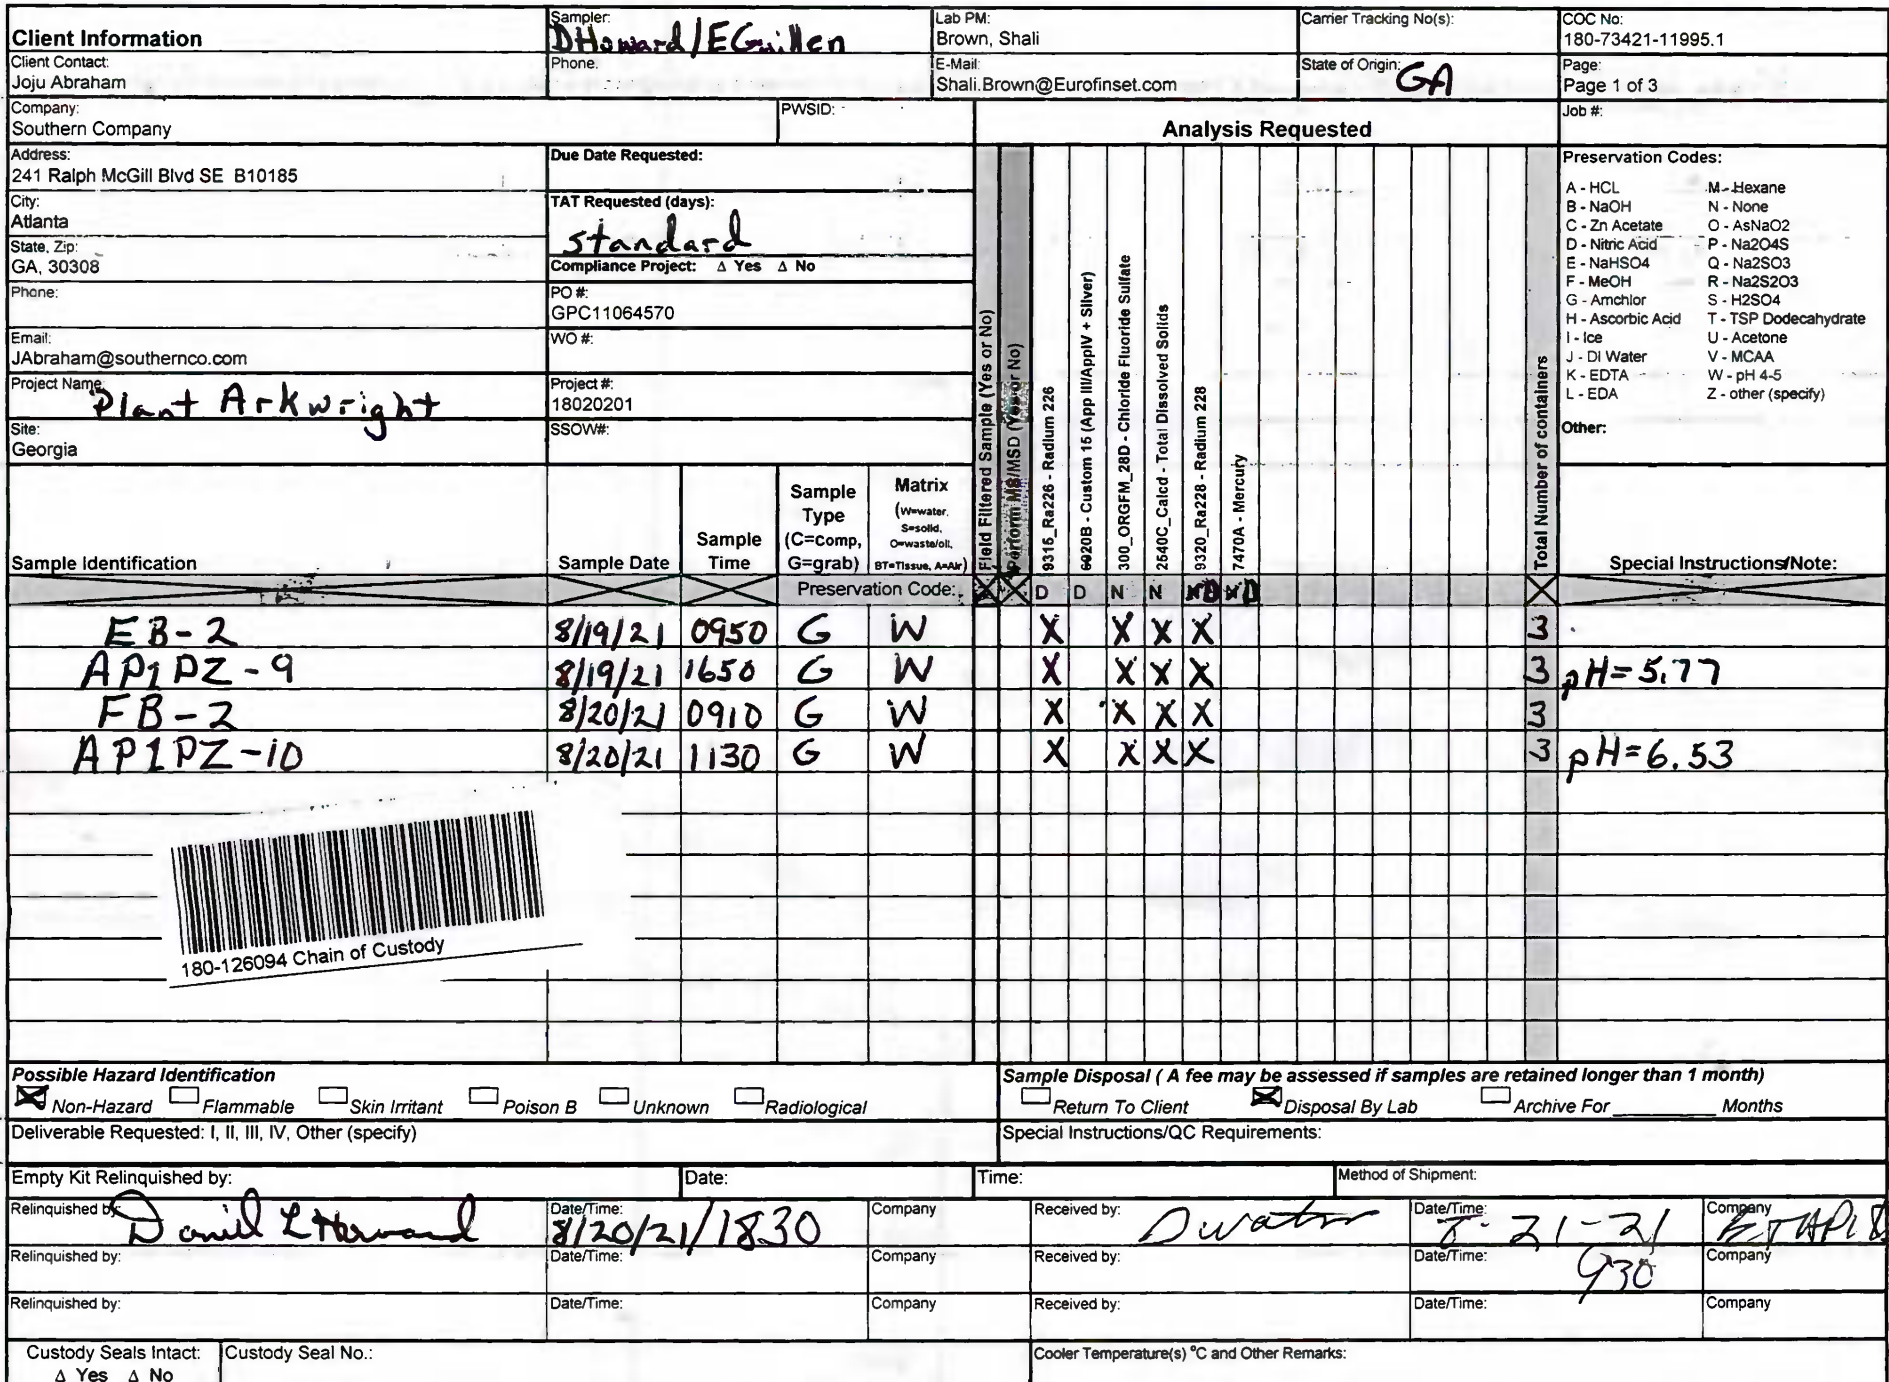 Client Information
Sampler:
D Howard / E Guillen
Lab PM:
Brown, Shali
Carrier Tracking No(s):
COC No:
180-73421-11995.1
Client Contact:
Joju Abraham
Phone:
E-Mail:
Shali.Brown@Eurofinset.com
State of Origin: GA
Page:
Page 1 of 3
Company:
Southern Company
PWSID:
Analysis Requested
Job #:
Address:
241 Ralph McGill Blvd SE B10185
Due Date Requested:
City:
Atlanta
TAT Requested (days):
standard
State, Zip:
GA, 30308
Compliance Project: Δ Yes Δ No
Phone:
PO #:
GPC11064570
Email:
JAbraham@southernco.com
WO #:
Project Name:
Plant Arkwright
Project #:
18020201
Site:
Georgia
SSOW#:
Preservation Codes:
A - HCL M - Hexane
B - NaOH N - None
C - Zn Acetate O - AsNaO2
D - Nitric Acid P - Na2O4S
E - NaHSO4 Q - Na2SO3
F - MeOH R - Na2S2O3
G - Amchlor S - H2SO4
H - Ascorbic Acid T - TSP Dodecahydrate
I - Ice U - Acetone
J - DI Water V - MCAA
K - EDTA W - pH 4-5
L - EDA Z - other (specify)
Other:
Field Filtered Sample (Yes or No)
Perform MS/MSD (Yes or No)
9315_Ra226 - Radium 226
6020B - Custom 15 (App III/AppIV + Silver)
300_ORGFM_28D - Chloride Fluoride Sulfate
2540C_Calcd - Total Dissolved Solids
9320_Ra228 - Radium 228
7470A - Mercury
Total Number of containers
Sample Identification
Sample Date
Sample Time
Sample Type (C=comp, G=grab)
Matrix (W=water, S=solid, O=waste/oil, BT=Tissue, A=Air)
Special Instructions/Note:
Preservation Code: X X D D N N D D X
EB-2 8/19/21 0950 G W X X X X 3
AP1PZ-9 8/19/21 1650 G W X X X X 3 pH=5.77
FB-2 8/20/21 0910 G W X X X X 3
AP1PZ-10 8/20/21 1130 G W X X X X 3 pH=6.53
180-126094 Chain of Custody
Possible Hazard Identification
Non-Hazard Flammable Skin Irritant Poison B Unknown Radiological
Sample Disposal ( A fee may be assessed if samples are retained longer than 1 month)
Return To Client Disposal By Lab Archive For Months
Deliverable Requested: I, II, III, IV, Other (specify)
Special Instructions/QC Requirements:
Empty Kit Relinquished by:
Date:
Time:
Method of Shipment:
Relinquished by: Daniel L Howard
Date/Time:
8/20/21/1830
Company
Received by:
Date/Time:
21-21
930
Company
Relinquished by:
Date/Time:
Company
Received by:
Date/Time:
Company
Relinquished by:
Date/Time:
Company
Received by:
Date/Time:
Company
Custody Seals Intact:
Δ Yes Δ No
Custody Seal No.:
Cooler Temperature(s) °C and Other Remarks: